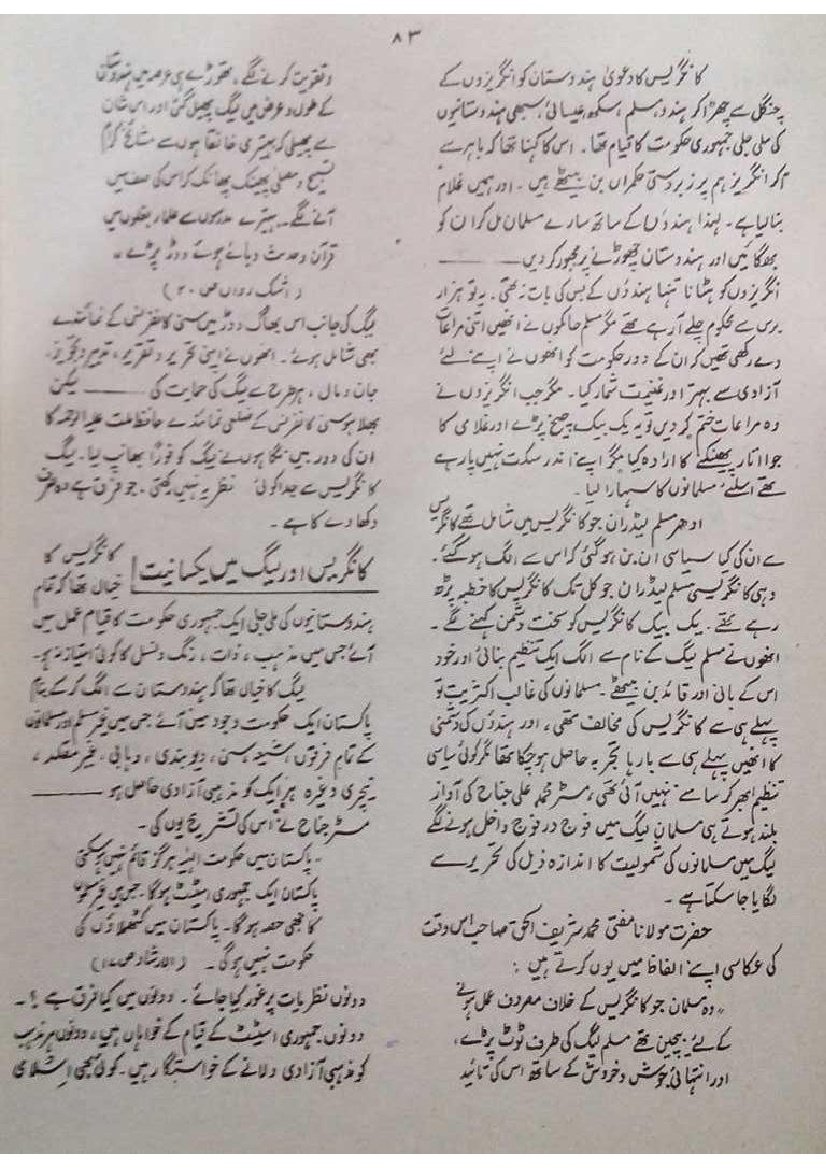 ۸۳
کانگریس کا دعویٰ ہندوستان کو انگریزوں کے
چنگل سے چھڑا کر ہندو، مسلم، سکھ، عیسائی، سبھی ہندوستانیوں
کی ملی جلی جمہوری حکومت کا قیام تھا۔ اس کا کہنا تھا کہ باہر سے
آکر انگریز ہم پر زبردستی حکمراں بن بیٹھے ہیں۔ اور ہمیں غلام
بنا لیا ہے۔ لہٰذا ہندؤں کے ساتھ سارے مسلمان مل کر ان کو
بھگائیں اور ہندوستان چھوڑنے پر مجبور کر دیں ــــــــ
انگریزوں کو ہٹانا تنہا ہندؤں کے بس کی بات نہ تھی۔ یہ تو ہزار
برس سے محکوم چلے آرہے تھے مگر مسلم حاکموں نے انھیں اتنی مراعات
دے رکھی تھیں کہ ان کے دور حکومت کو انھوں نے اپنے لئے
آزادی سے بہتر اور غنیمت شمار کیا۔ مگر جب انگریزوں نے
وہ مراعات ختم کر دیں تو یہ یک بیک چیخ پڑے اور غلامی کا
جوا اتار پھینکنے کا ارادہ کیا مگر اپنے اندر سکت نہیں پارہے
تھے اسلئے مسلمانوں کا سہارا لیا۔
ادھر مسلم لیڈران جو کانگریس میں شامل تھے کانگریس
سے ان کی کیا سیاسی ان بن ہو گئی کہ اس سے الگ ہو گئے۔
وہی کانگریسی مسلم لیڈران جو کل تک کانگریس کا خطبہ پڑھ
رہے تھے۔ یک بیک کانگریس کو سخت دشمن کہنے لگے۔
انھوں نے مسلم لیگ کے نام سے الگ ایک تنظیم بنائی اور خود
اس کے بانی اور قائدین بیٹھے۔ مسلمانوں کی غالب اکثریت تو
پہلے ہی سے کانگریس کی مخالف تھی، اور ہندؤں کی دشمنی
کا انھیں پہلے ہی سے بارہا تجربہ حاصل ہو چکا تھا مگر کوئی سیاسی
تنظیم ابھر کر سامنے نہیں آئی تھی، مسٹر محمد علی جناح کی آواز
بلند ہوتے ہی مسلمان لیگ میں فوج در فوج داخل ہونے لگے
لیگ میں مسلمانوں کی شمولیت کا اندازہ ذیل کی تحریر سے
لگایا جا سکتا ہے۔
حضرت مولانا مفتی محمد شریف الحق صاحب اس وقت
کی عکاسی اپنے الفاظ میں یوں کرتے ہیں:
"وہ مسلمان جو کانگریس کے خلاف مصروف عمل ہونے
کے لئے بیچین تھے مسلم لیگ کی طرف ٹوٹ پڑے،
اور انتہائی جوش و خروش کے ساتھ اس کی تائید
و تقویت کرنے لگے، تھوڑے ہی عرصہ میں ہندوستان
کے طول و عرض میں لیگ پھیل گئی اور اس شان
سے پھیلی کہ بہتری خانقاہوں سے مشائخ کرام
تسبیح و مصلی پھینک پھانک کر اس کی صف میں
آنے لگے۔ بہترے مدرسوں سے علماء بغلوں میں
قرآن و حدیث دبائے ہوئے دوڑ پڑے۔
(اشک رواں ص ۴۰)
لیگ کی جانب اس بھاگ دوڑ میں سنی کانفرنس کے نمائندے
بھی شامل ہوئے۔ انھوں نے اپنی تحریر و تقریر، تدبیر و تجویز،
جان و مال، ہر طرح سے لیگ کی حمایت کی ــــــــ لیکن
بھلا ہو سنی کانفرنس کے ضلعی نمائندے حافظ ملت علیہ الرحمہ کا
ان کی دور بیں نگاہوں نے لیگ کو فوراً بھانپ لیا۔ لیگ
کانگریس سے جداگوئی نظریہ نہیں رکھتی، جو فرق ہے وہ صرف
دکھاوے کا ہے۔
کانگریس اور لیگ میں یکسانیت
کانگریس کا
خیال تھا کہ تمام
ہندوستانیوں کی ملی جلی ایک جمہوری حکومت کا قیام عمل میں
آئے جس میں مذہب، ذات، رنگ و نسل کا کوئی امتیاز نہ ہو۔
لیگ کا خیال تھا کہ ہندوستان سے الگ کر کے بنام
پاکستان ایک حکومت وجود میں آئے جس میں غیر مسلم اور مسلمانوں
کے تمام فرقوں شیعہ، سنی، دیوبندی، وہابی، غیر مقلد،
نیچری وغیرہ ہر ایک کو مذہبی آزادی حاصل ہو ــــــــ
مسٹر جناح نے اس کی تشریح یوں کی۔
"پاکستان میں حکومت الٰہیہ ہرگز قائم نہیں ہو سکتی
پاکستان ایک جمہوری اسٹیٹ ہوگا۔ جس میں غیر مسلموں
کا بھی حصہ ہوگا۔ پاکستان میں کٹھ ملاؤں کی
حکومت نہیں ہوگی۔ (الارشاد ص ۱۷)
دونوں نظریات پر غور کیا جائے۔ دونوں میں کیا فرق ہے؟۔
دونوں جمہوری اسٹیٹ کے قیام کے خواہاں ہیں، دونوں ہر مذہب
کو مذہبی آزادی دلانے کے خواستگار ہیں۔ کوئی بھی اسلامی